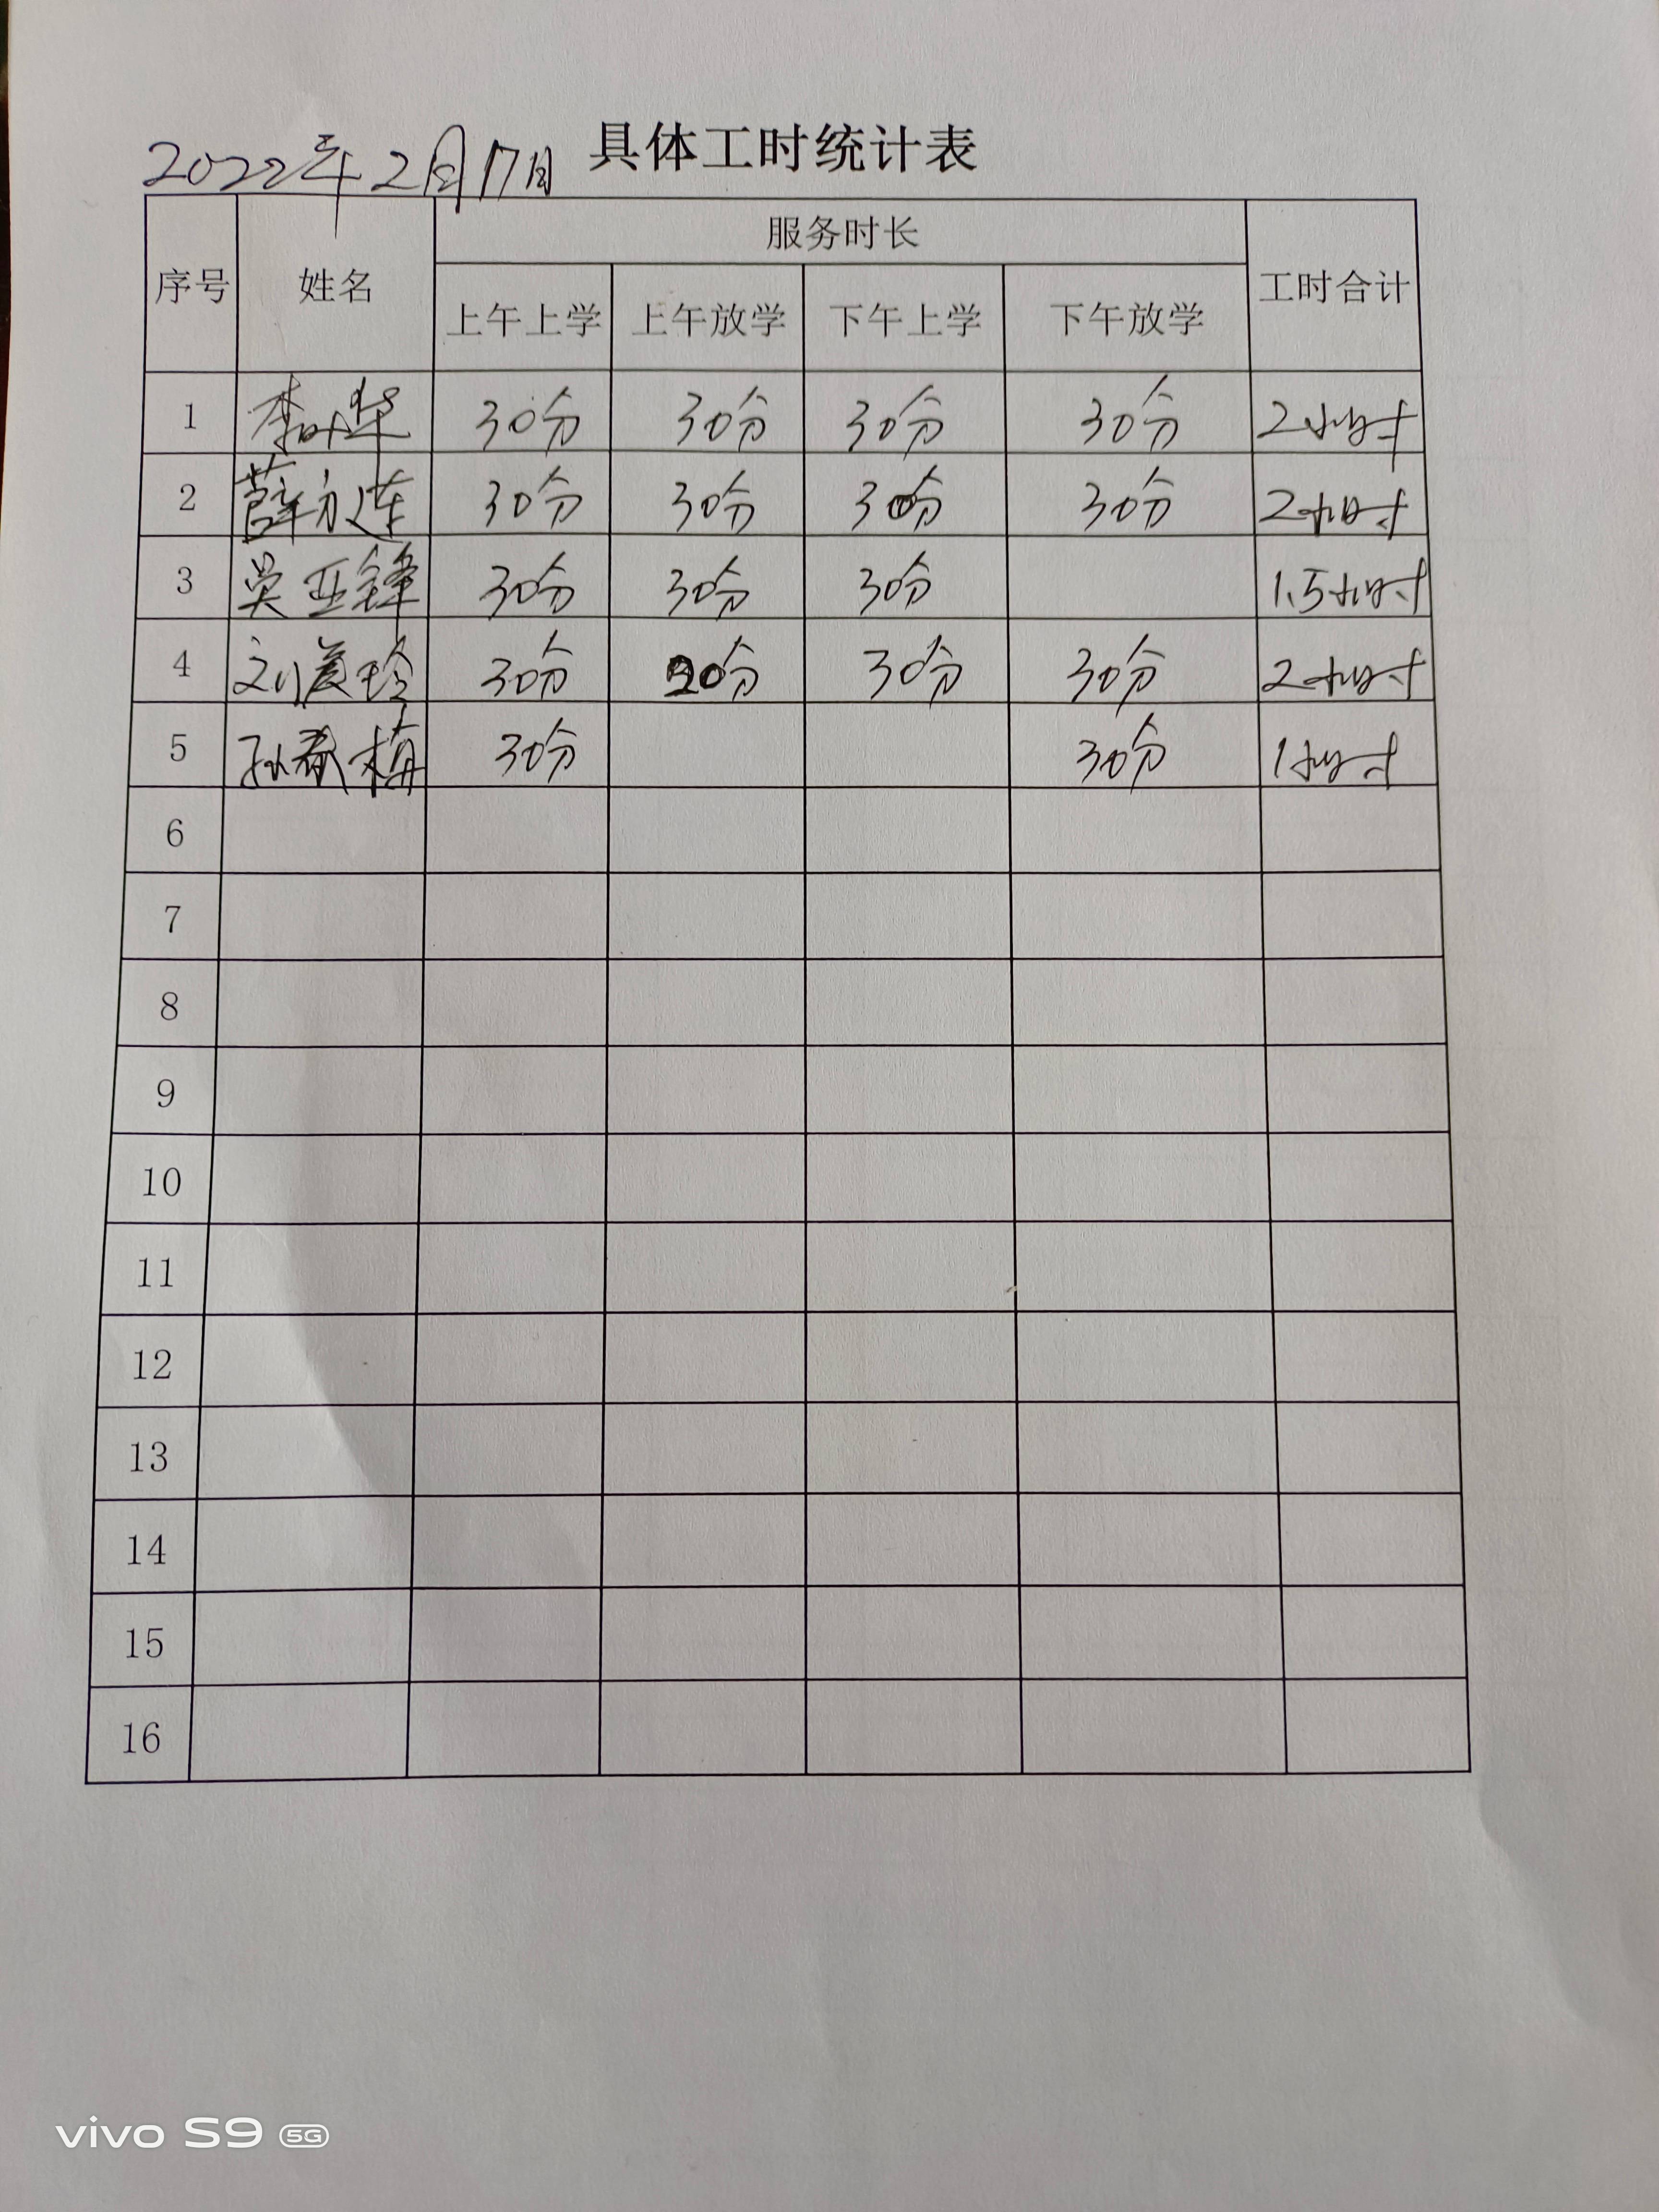 2022年2月17日 具体工时统计表
序号 姓名 服务时长 工时合计
上午上学 上午放学 下午上学 下午放学
1 李叶华 30分 30分 30分 30分 2小时
2 薛永连 30分 30分 30分 30分 2小时
3 吴亚锋 30分 30分 30分 1.5小时
4 刘美玲 30分 30分 30分 30分 2小时
5 孙春梅 30分 30分 1小时
6
7
8
9
10
11
12
13
14
15
16
vivo S9 5G